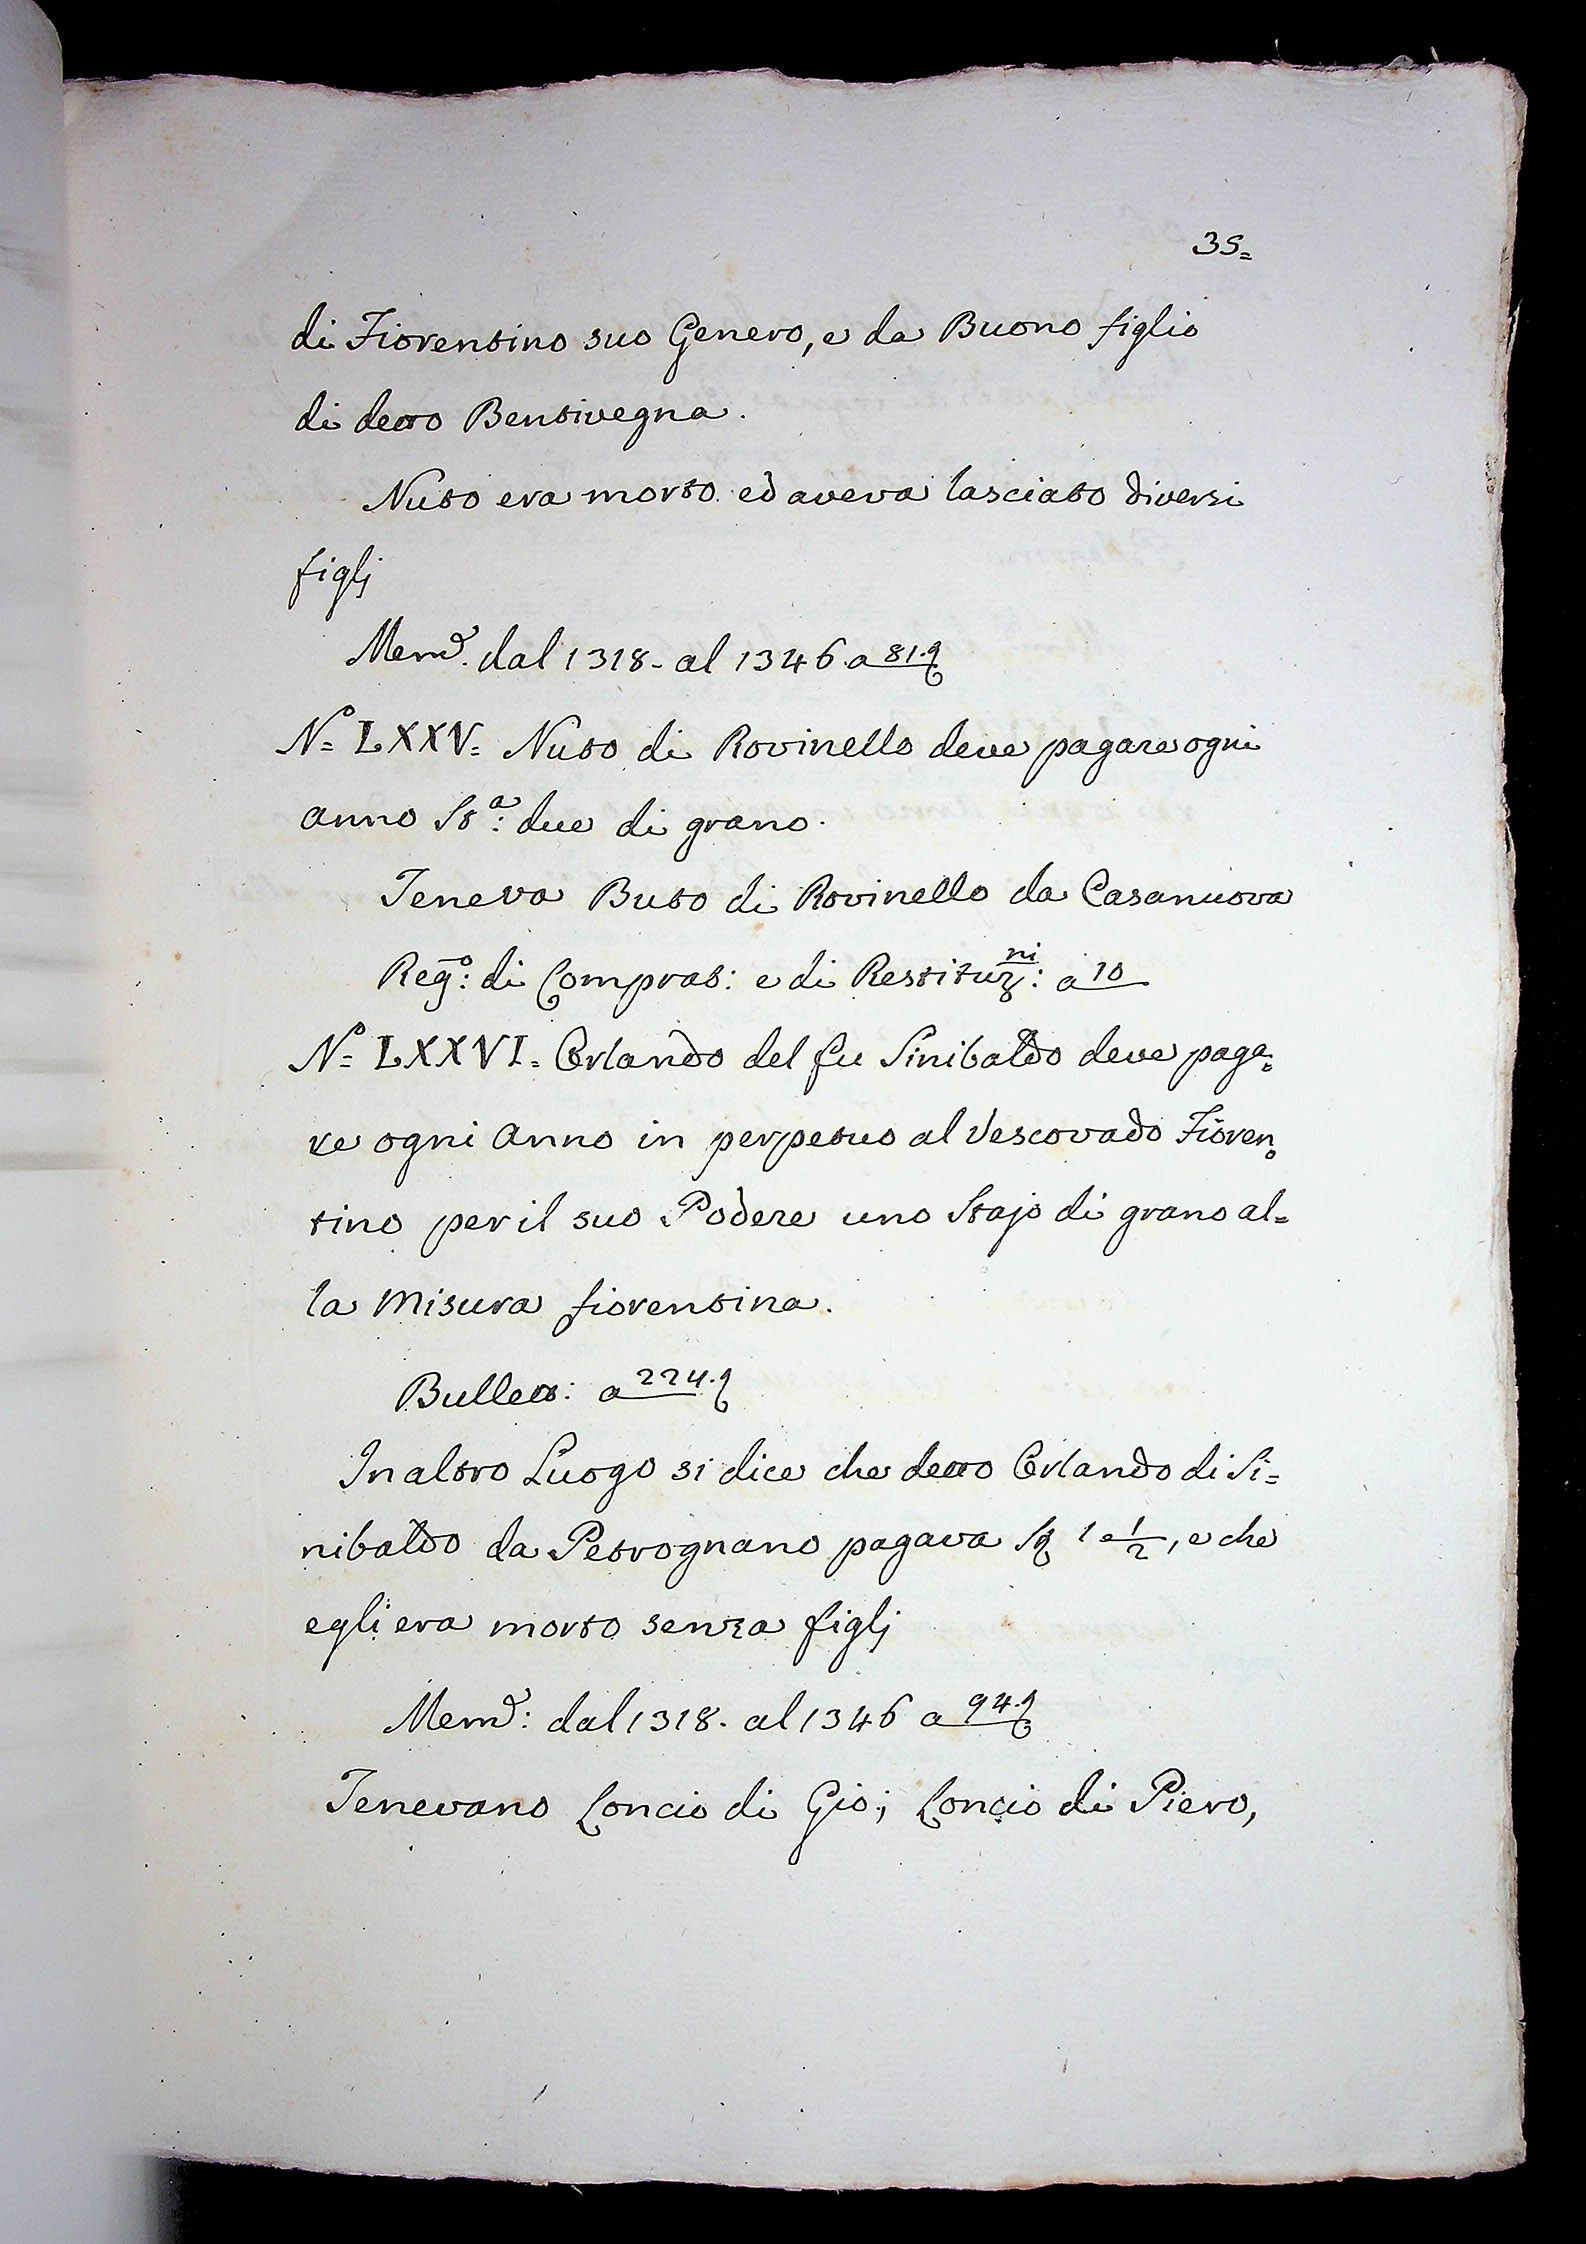 35=
di Fiorentino suo Genero, e da Buono figlio
di detto Bentivegna.
Nuto era morto ed aveva lasciato diversi
figlj
Mem.e dal 1318. al 1346. a 81.t
N.o LXXV. Nuto di Rovinello deve pagare ogni
anno St.a: due di grano.
Teneva Buto di Rovinello da Casanuova
Reg.o: di Comprat: e di Restituz.ni: a 10
N.o LXXVI. Orlando del fu Sinibaldo deve paga=
re ogni Anno in perpetuo al Vescovado Fioren=
tino per il suo Podere uno Stajo di grano al=
la Misura fiorentina.
Bullett: a 224.t
In altro Luogo si dice che detto Orlando di Si=
nibaldo da Petrognano pagava 1 e 1/2, e che
egli era morto senza figlj
Mem.e: dal 1318. al 1346 a 94.t
Tenevano Concio di Gio; Concio di Piero,